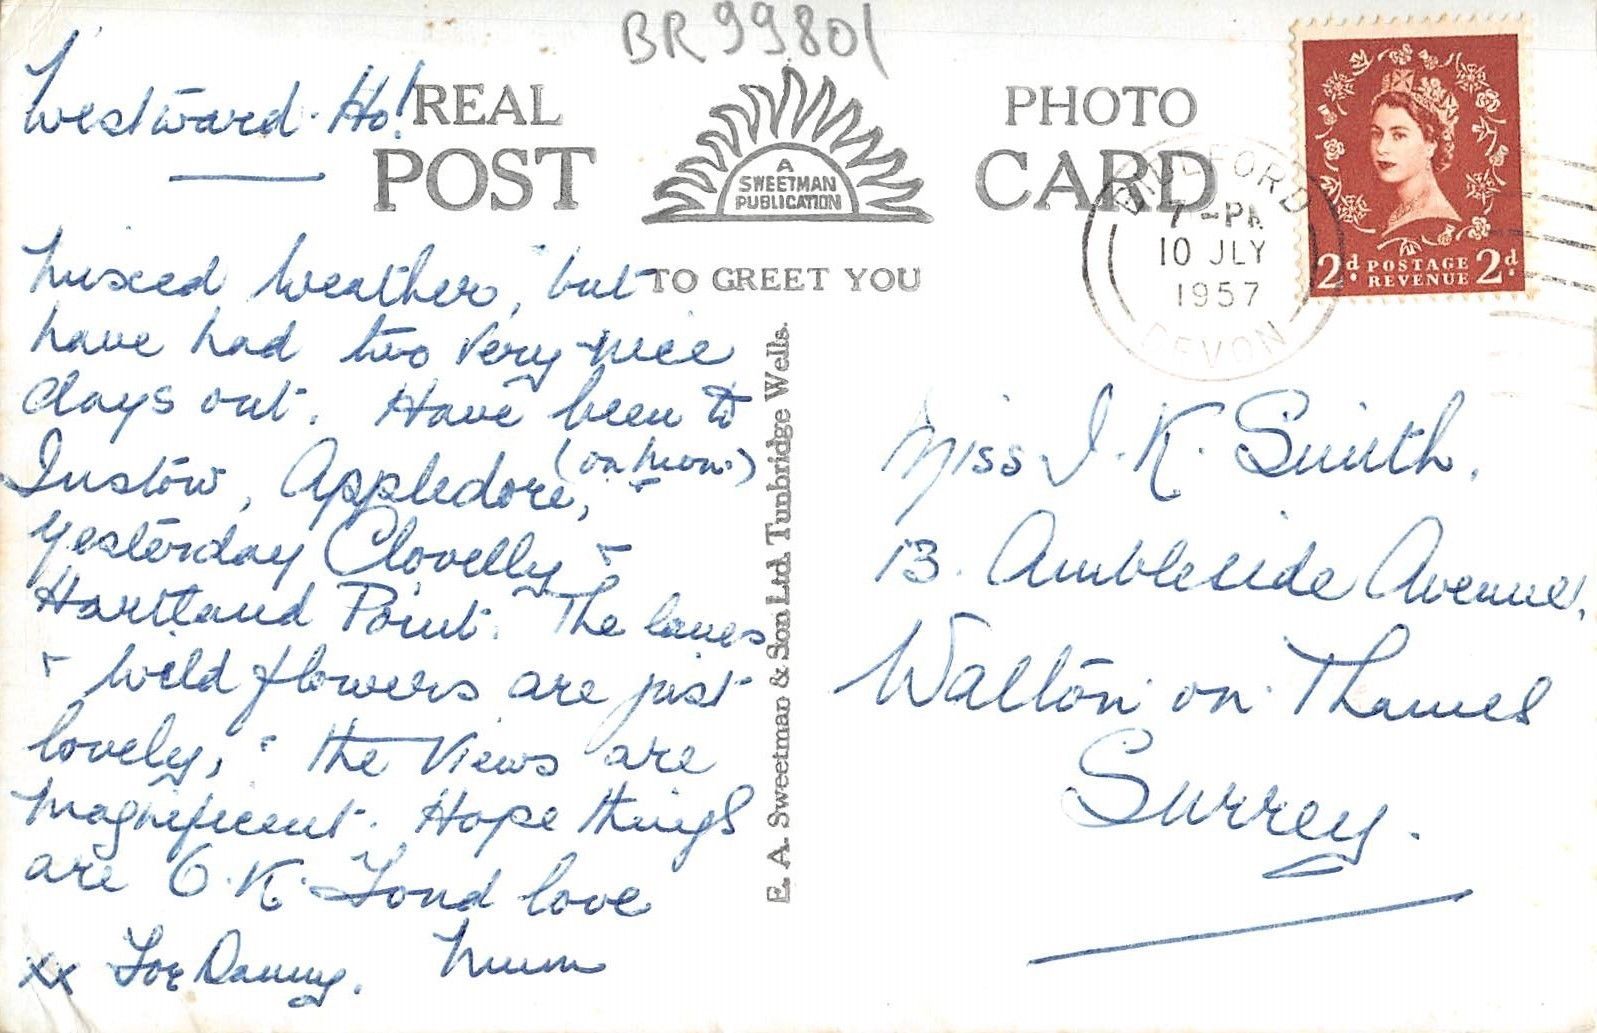 BR 99801
Westward-Ho!
REAL PHOTO
POST CARD
A
SWEETMAN
PUBLICATION
TO GREET YOU
BIDEFORD
7 - PM
10 JLY
1957
DEVON
2d. POSTAGE 2d.
REVENUE
Mixed weather, but
have had two very nice
days out. Have been to
Instow, Appledore, (on Mon.) +
yesterday Clovelly +
Hartland Point. The lanes
+ wild flowers are just
lovely, + the views are
magnificent. Hope things
are O.K. Fond love
Mum
xx For Danny.
E. A. Sweetman & Son Ltd. Tunbridge Wells.
Miss J. K. Smith,
13. Ambleside Avenue,
Walton on Thames
Surrey.